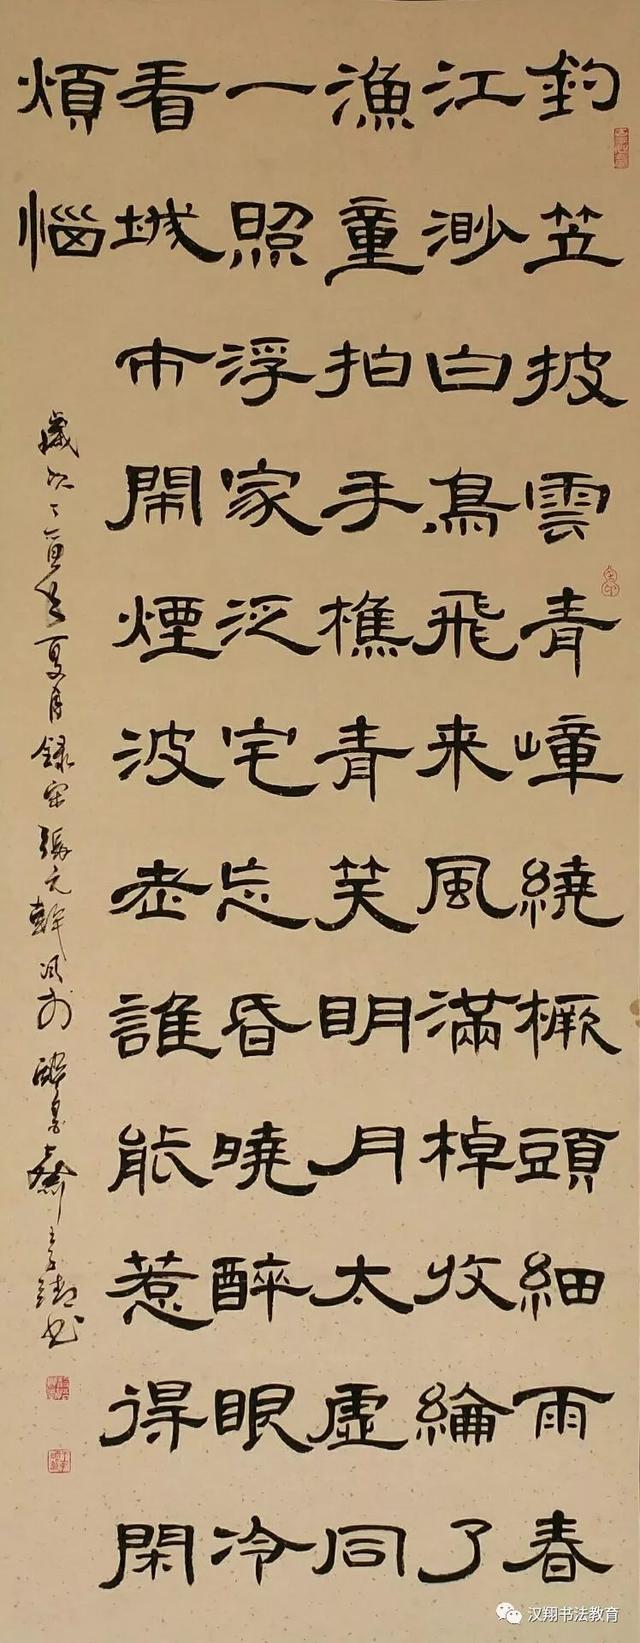 釣笠披雲青嶂繞橛頭細雨春
江渺白鳥飛来風滿棹收綸了
漁童拍手樵青笑明月太虛同
一照浮家泛宅忘昏曉醉眼冷
看城市閙煙波老誰能惹得閑
煩惱
歲次丁酉年夏月錄宋張元幹詞於醉墨齋
汉翔书法教育